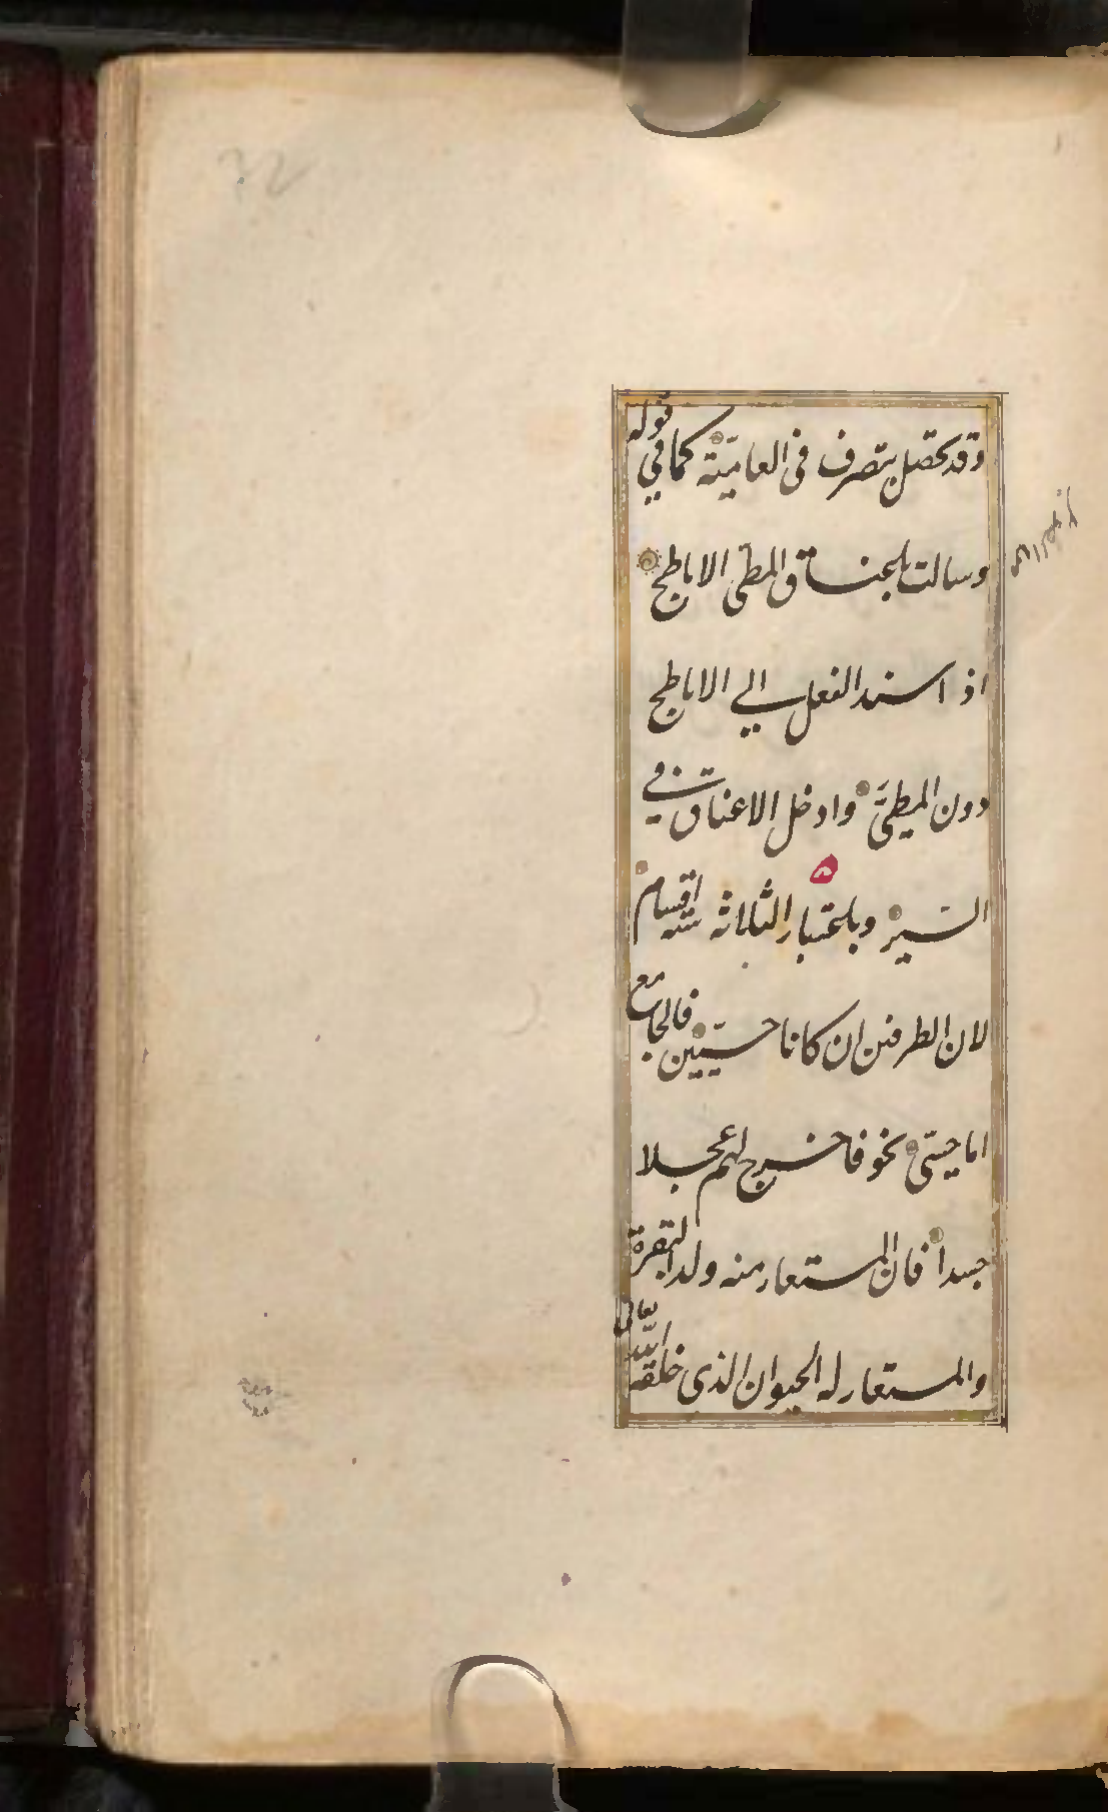 وقد تحصل بتصرف فى العامية كما في قوله
وسالت باعناق المطى الاباطح
اذ اسند الفعل الي الاباطح
دون المطيّ وادخل الاعناق في
السير وباعتبار الثلاثة ستة اقسام
لان الطرفين ان كانا حسّيّين فالجامع
اما حسّى نحو فاخرج لهم عجلا
جسدا فان المستعار منه ولد البقرة
والمستعار له الحيوان الذى خلقه الله تعالى